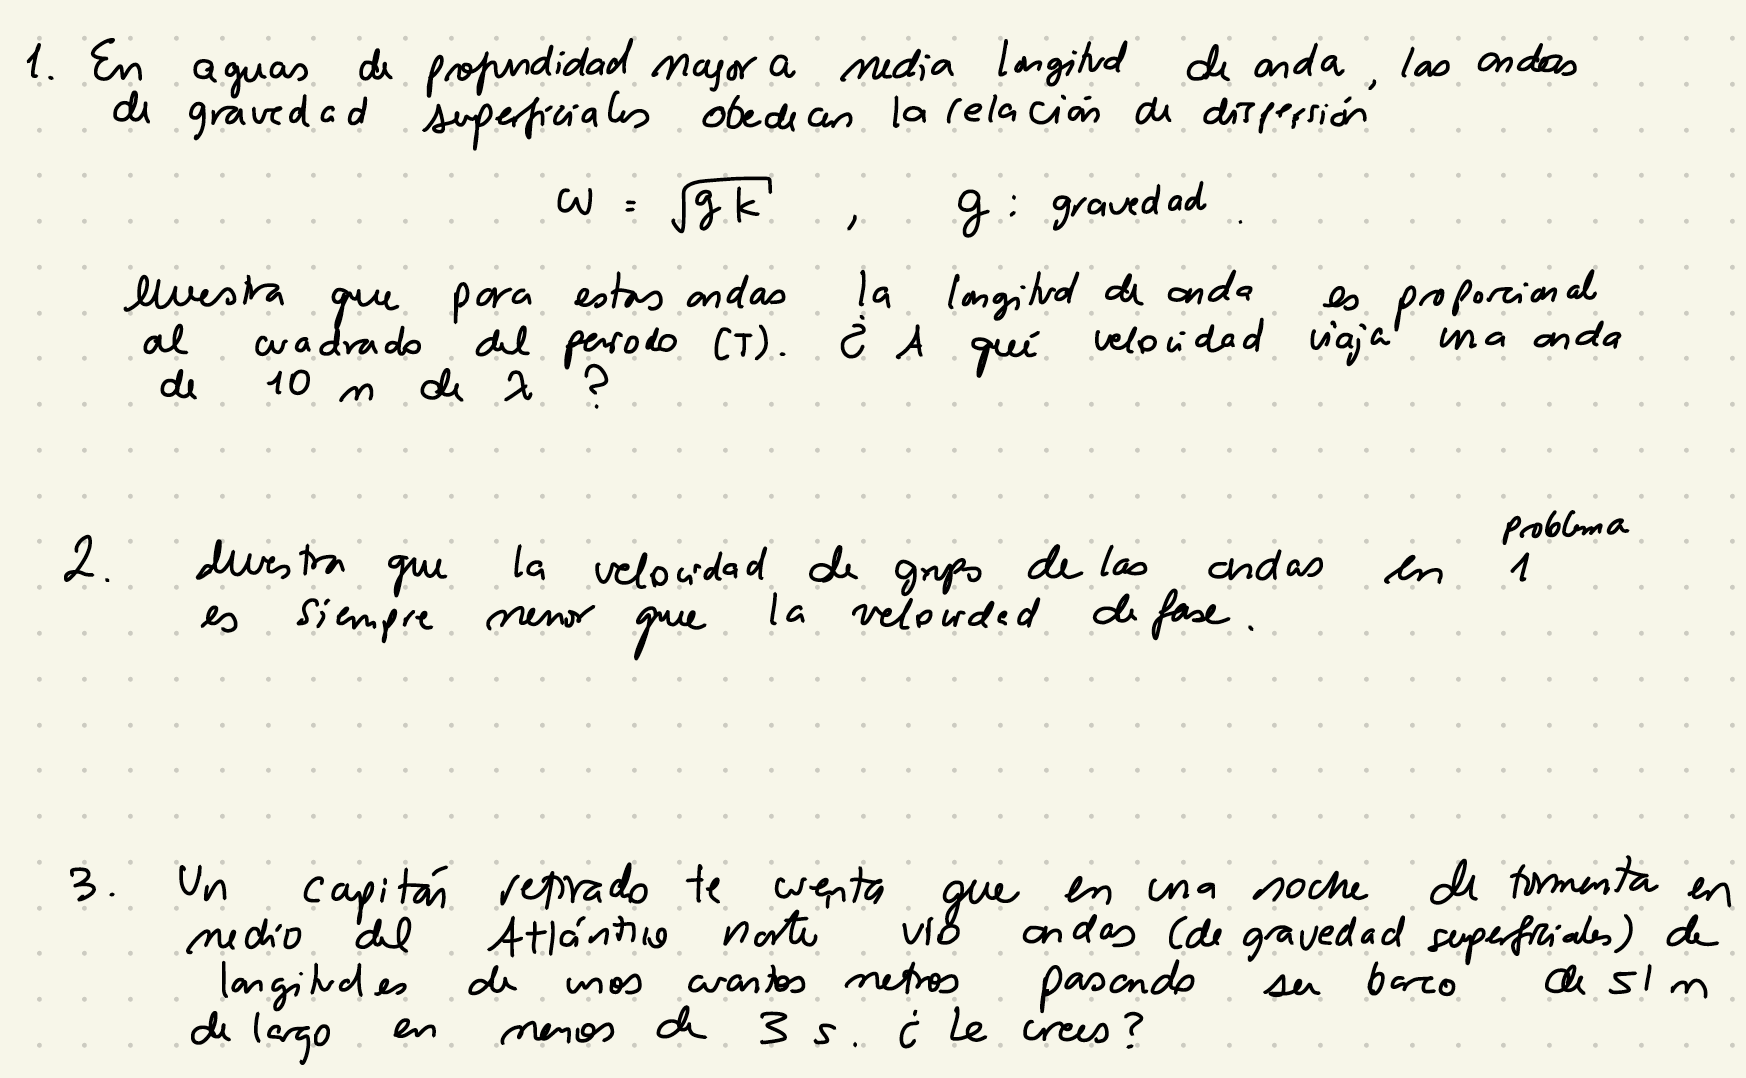 1. En aguas de profundidad mayor a media longitud de onda, las ondas
de gravedad superficiales obedecan la relación de dispersión
ω = √gk , g : gravedad.
Muestra que para estas ondas la longitud de onda es proporcional
al cuadrado del periodo (T). ¿A qué velocidad viaja una onda
de 10 m de λ ?
problema
2. Muestra que la velocidad de grupo de las ondas en 1
es siempre menor que la velocidad de fase.
3. Un capitán retirado te cuenta que en una noche de tormenta en
medio del Atlántico norte vió ondas (de gravedad superficiales) de
longitudes de unos cuantos metros pasando su barco de 51 m
de largo en menos de 3 s. ¿Le crees?